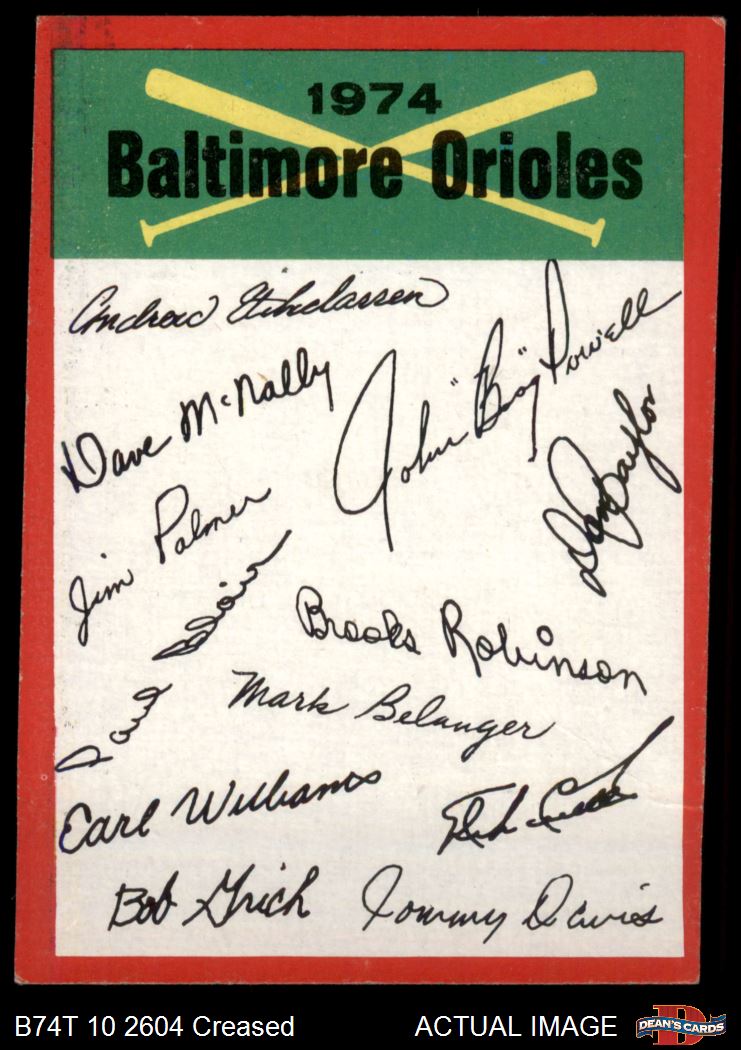 1974
Baltimore Orioles
Andrew Etchebarren
Dave McNally
John "Boog" Powell
Don Baylor
Jim Palmer
Paul Blair
Brooks Robinson
Mark Belanger
Earl Williams
Bob Grich
Tommy Davis
B74T 10 2604 Creased
ACTUAL IMAGE
D
DEAN'S CARDS